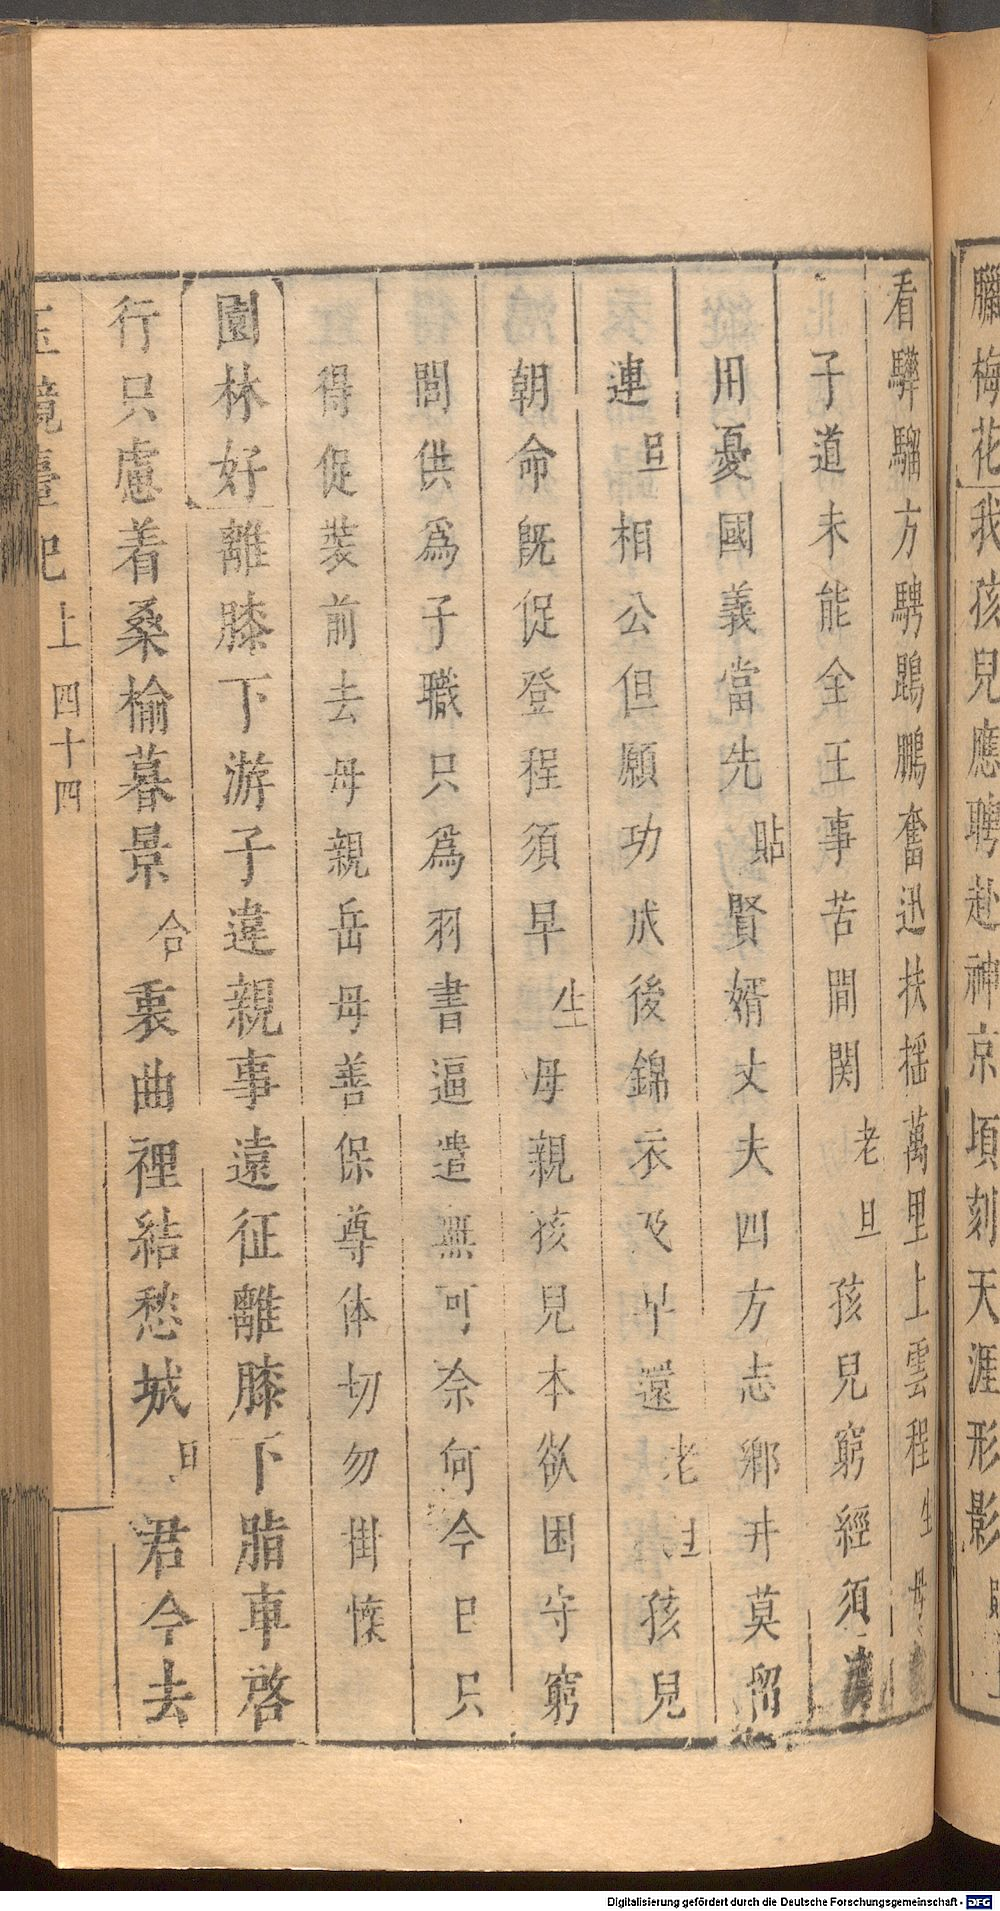 臘梅花我孩兒應聘赴神京頃刻天涯形影
看驊騮方騁鵾鵬奮迅扶搖萬里上雲程生母
子道未能全王事苦間関老旦孩兒窮經須
用憂國義當先貼賢婿丈夫四方志鄉井莫留
連旦相公但願功成後錦衣及早還老旦孩兒
朝命既促登程須早生母親孩兒本欲困守窮
閭供爲子職只爲羽書逼遣無可奈何今日只
得促裝前去母親岳母善保尊体切勿掛懷
園林好離膝下游子違親事遠征離膝下脂車啓
行只慮着桑榆暮景合衷曲裡結愁城旦君今去
玉鏡臺記 上 四十四
Digitalisierung gefördert durch die Deutsche Forschungsgemeinschaft - DFG